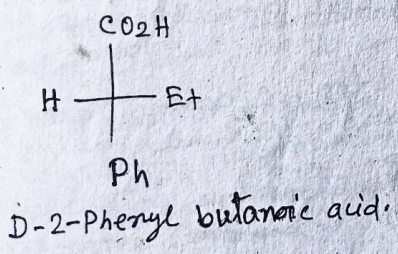 CO2H
H Et
Ph
D-2-Phenyl butanoic acid.